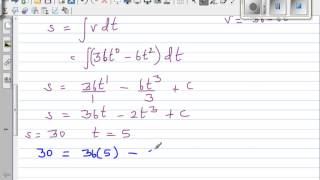 s = ∫v dt
= ∫(36t⁰ - 6t²) dt
s = 36t¹/1 - 6t³/3 + C
s = 36t - 2t³ + C
s = 30 t = 5
30 = 36(5) -